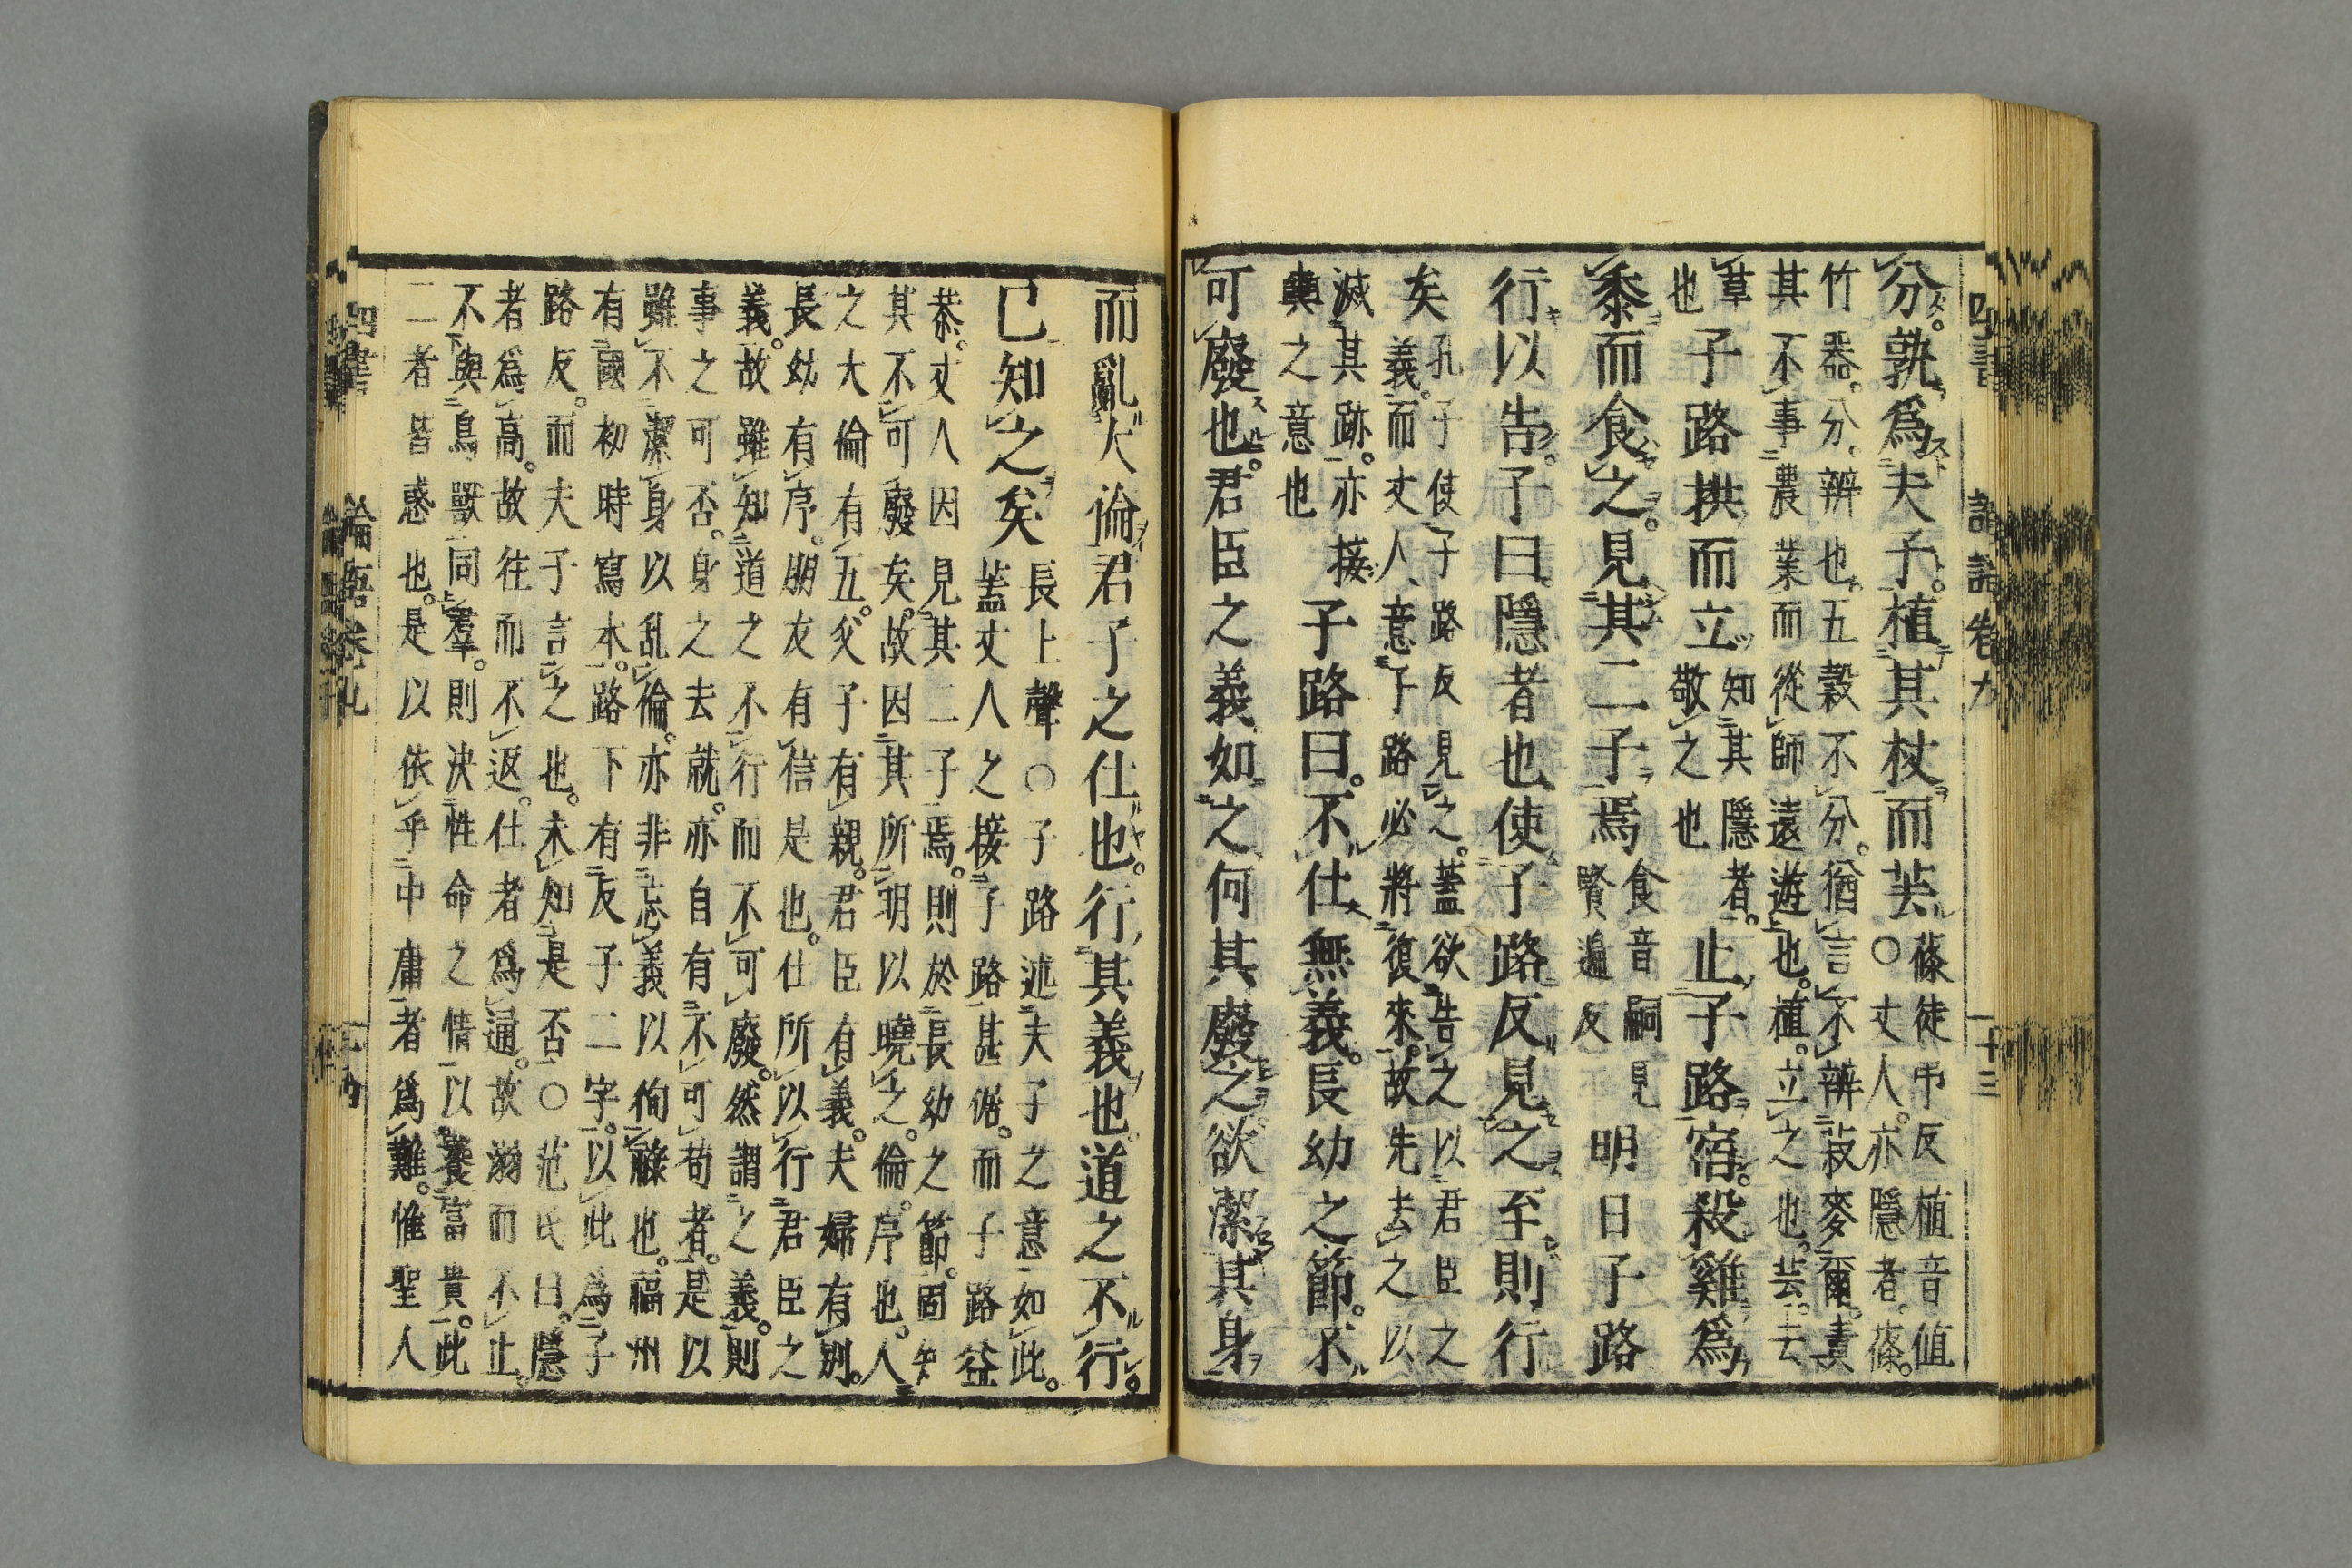 四書 論語卷九 十三
分孰爲夫子植其杖而芸
蓧徒弔反植音値
○丈人亦隱者蓧
竹器分辨也五穀不分猶言不辨菽麥爾責
其不事農業而從師遠遊也植立之也芸去
草
也
子路拱而立
知其隱者
敬之也
止子路宿殺雞爲
黍而食之見其二子焉
食音嗣見
賢遍反
明日子路
行以告子曰隱者也使子路反見之至則行
矣
孔子使子路反見之蓋欲告之以君臣之
義而丈人意子路必將復來故先去之以
滅其跡亦接
輿之意也
子路曰不仕無義長幼之節不
可廢也君臣之義如之何其廢之欲潔其身
而亂大倫君子之仕也行其義也道之不行
已知之矣
長上聲○子路述夫子之意如此
蓋丈人之接子路甚倨而子路益
恭丈人因見其二子焉則於長幼之節固知
其不可廢矣故因其所明以曉之倫序也人
之大倫有五父子有親君臣有義夫婦有別
長幼有序朋友有信是也仕所以行君臣之
義故雖知道之不行而不可廢然謂之義則
事之可否身之去就亦自有不可苟者是以
雖不潔身以乱倫亦非忘義以徇祿也福州
有國初時寫本路下有反子二字以此爲子
路反而夫子言之也未知是否○范氏曰隱
者爲高故往而不返仕者爲通故溺而不止
不與鳥獸同羣則決性命之情以饕富貴此
二者皆惑也是以依乎中庸者爲難惟聖人
四書 論語卷九